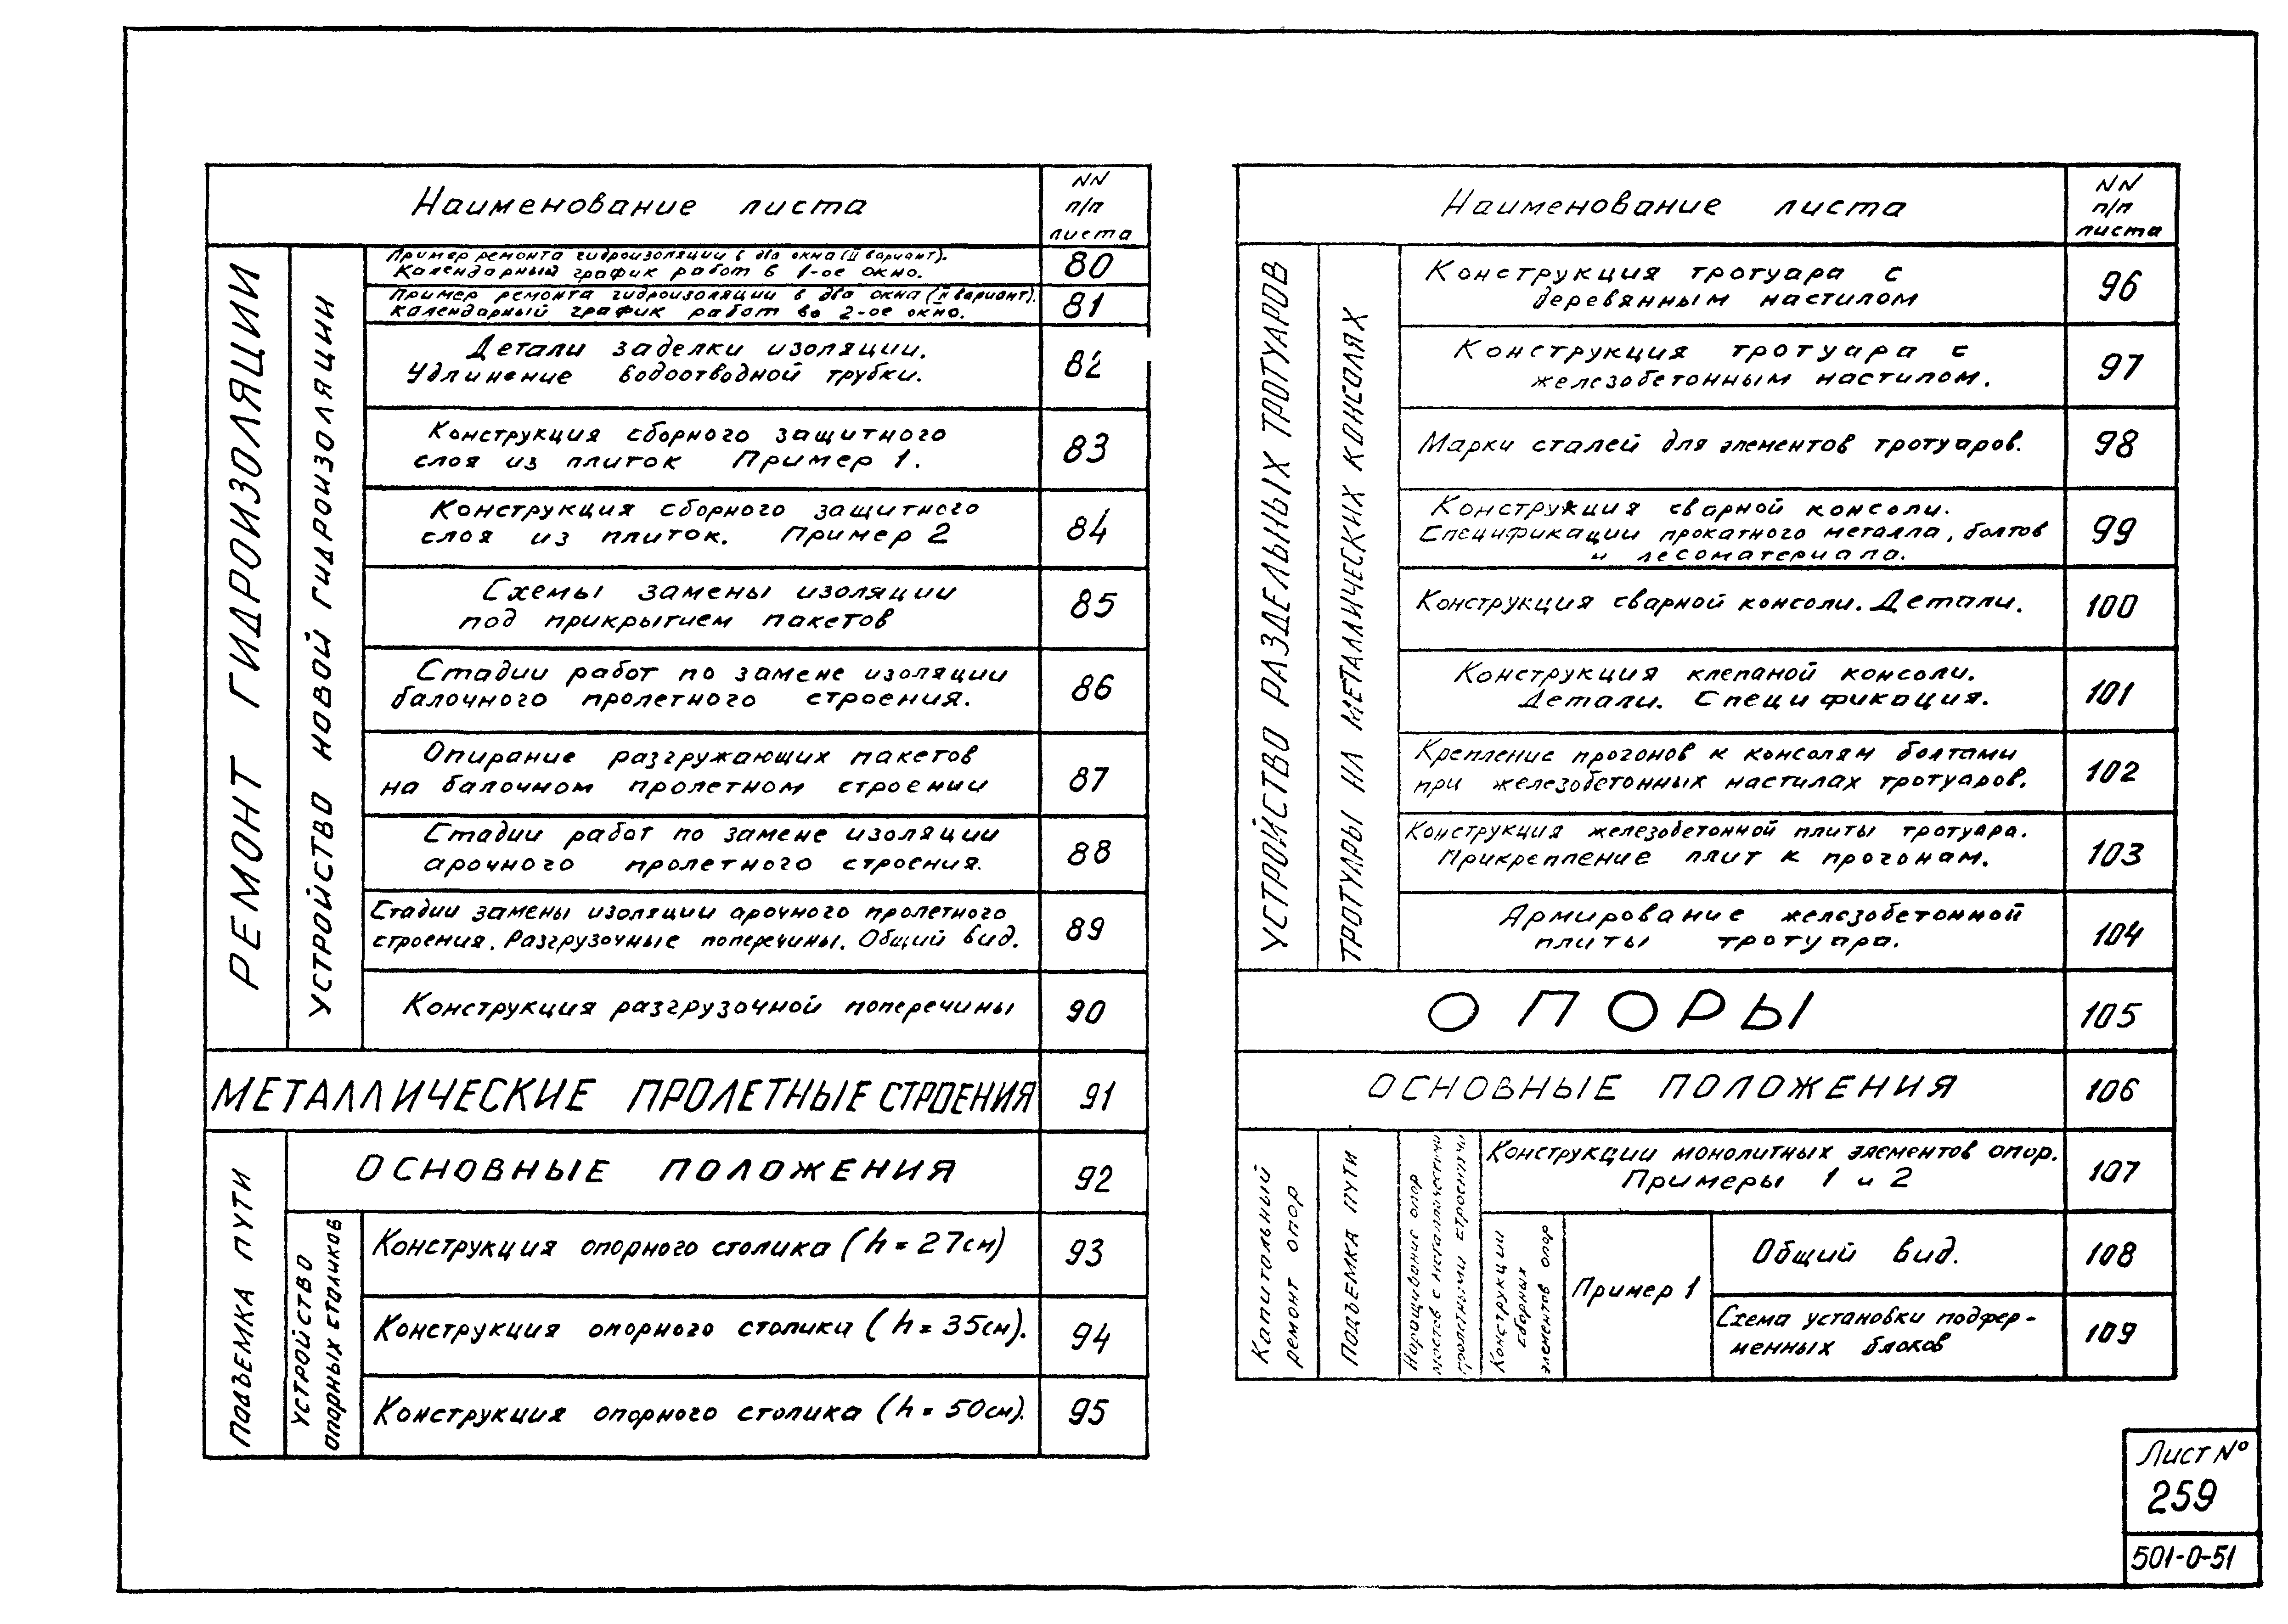 Наименование листа
NN
п/п
листа
РЕМОНТ ГИДРОИЗОЛЯЦИИ
УСТРОЙСТВО НОВОЙ ГИДРОИЗОЛЯЦИИ
Пример ремонта гидроизоляции в два окна (II вариант).
Календарный график работ в 1-ое окно.
80
Пример ремонта гидроизоляции в два окна (II вариант).
Календарный график работ во 2-ое окно.
81
Детали заделки изоляции.
Удлинение водоотводной трубки.
82
Конструкция сборного защитного
слоя из плиток Пример 1.
83
Конструкция сборного защитного
слоя из плиток. Пример 2
84
Схемы замены изоляции
под прикрытием пакетов
85
Стадии работ по замене изоляции
балочного пролетного строения.
86
Опирание разгружающих пакетов
на балочном пролетном строении
87
Стадии работ по замене изоляции
арочного пролетного строения.
88
Стадии замены изоляции арочного пролетного
строения. Разгрузочные поперечины. Общий вид.
89
Конструкция разгрузочной поперечины
90
МЕТАЛЛИЧЕСКИЕ ПРОЛЕТНЫЕ СТРОЕНИЯ
91
ПОДЪЕМКА ПУТИ
ОСНОВНЫЕ ПОЛОЖЕНИЯ
92
УСТРОЙСТВО
ОПОРНЫХ СТОЛИКОВ
Конструкция опорного столика (h = 27см)
93
Конструкция опорного столика (h = 35см).
94
Конструкция опорного столика (h = 50см).
95
Наименование листа
NN
п/п
листа
УСТРОЙСТВО РАЗДЕЛЬНЫХ ТРОТУАРОВ
ТРОТУАРЫ НА МЕТАЛЛИЧЕСКИХ КОНСОЛЯХ
Конструкция тротуара с
деревянным настилом
96
Конструкция тротуара с
железобетонным настилом.
97
Марки сталей для элементов тротуаров.
98
Конструкция сварной консоли.
Спецификации прокатного металла, болтов
и лесоматериала.
99
Конструкция сварной консоли. Детали.
100
Конструкция клепаной консоли.
Детали. Спецификация.
101
Крепление прогонов к консолям болтами
при железобетонных настилах тротуаров.
102
Конструкция железобетонной плиты тротуара.
Прикрепление плит к прогонам.
103
Армирование железобетонной
плиты тротуара.
104
ОПОРЫ
105
ОСНОВНЫЕ ПОЛОЖЕНИЯ
106
Капитальный
ремонт опор
ПОДЪЕМКА ПУТИ
Наращивание опор
мостов с металлическими
пролетными строениями
Конструкции монолитных элементов опор.
Примеры 1 и 2
107
Конструкции
сборных
элементов опор
Пример 1
Общий вид.
108
Схема установки подфер-
менных блоков
109
Лист №
259
501-0-51